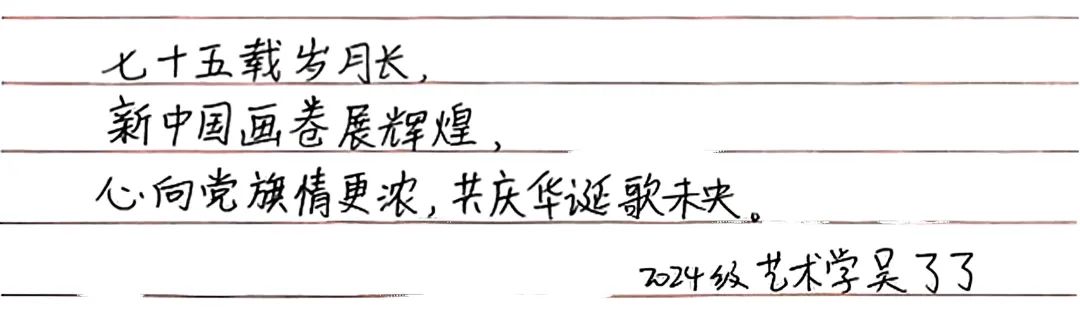 七十五载岁月长,
新中国画卷展辉煌,
心向党旗情更浓,共庆华诞歌未央。
2024级艺术学吴了了